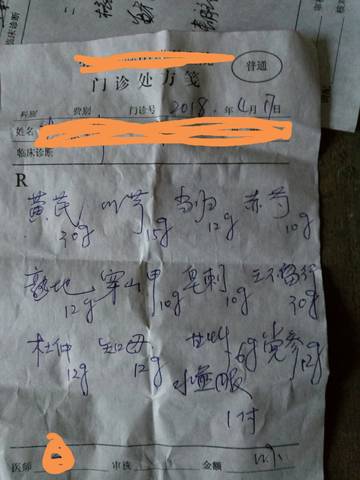 普通
门诊处方笺
科别 费别 门诊号 2018 年 4 月 7 日
姓名
临床诊断
R
黄芪 川芎 当归 赤芍
30g 15g 12g 10g
熟地 穿山甲 皂刺 王不留行
12g 10g 10g 30g
杜仲 知母 甘草 6g 党参
12g 12g 12g
水煎服
1付
医师 审核 金额